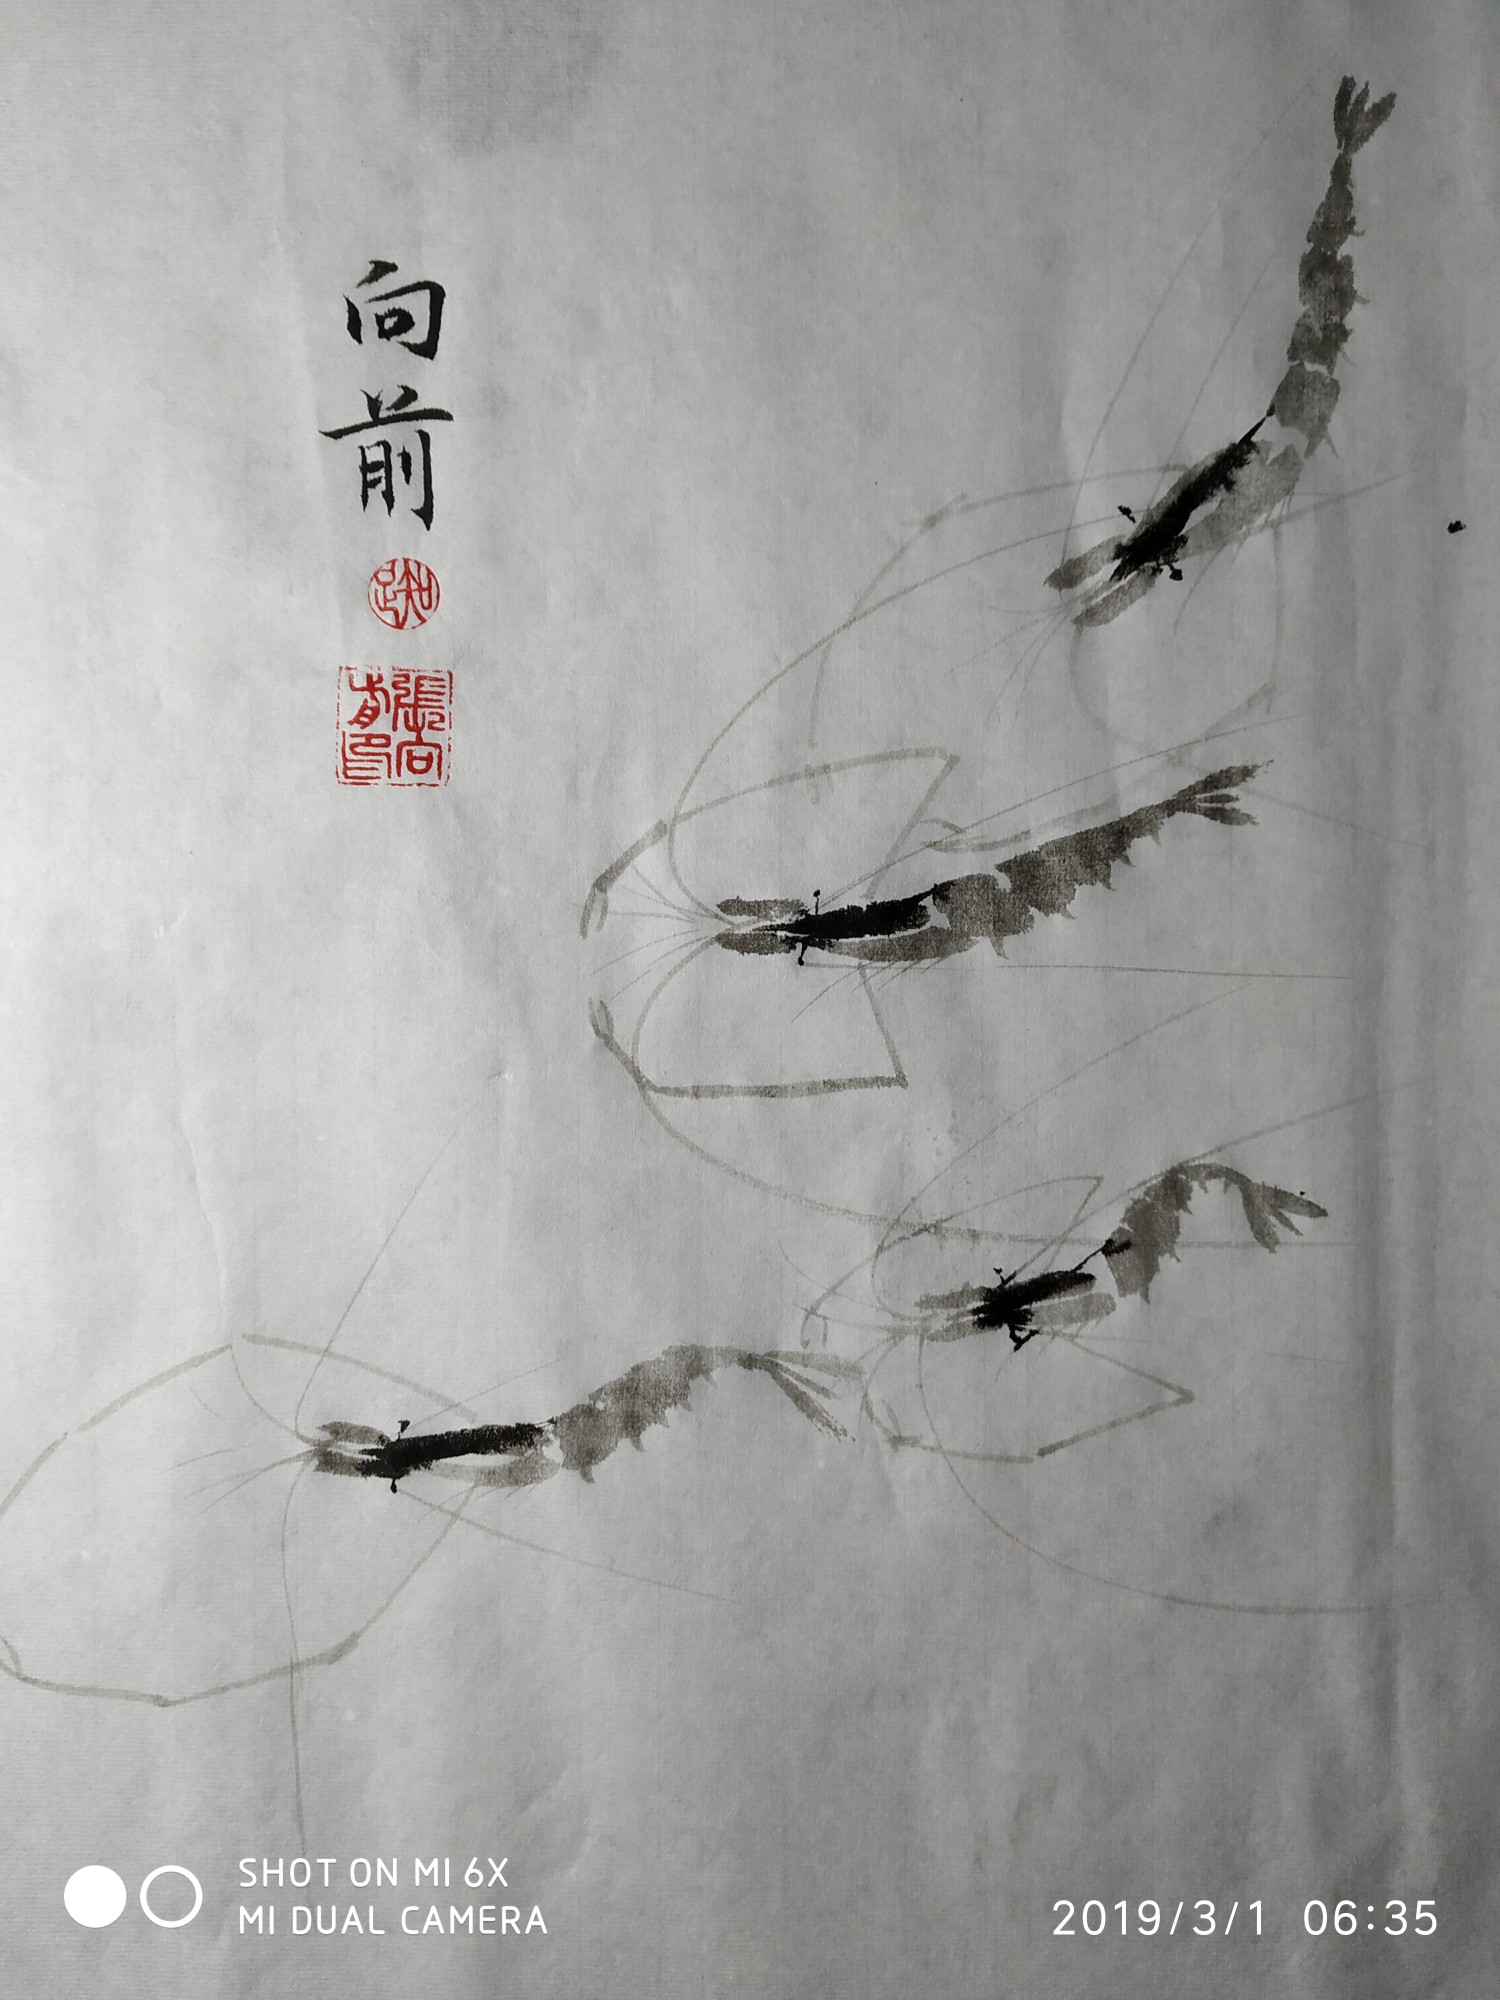 向前
知足
張向春印
SHOT ON MI 6X
MI DUAL CAMERA
2019/3/1 06:35